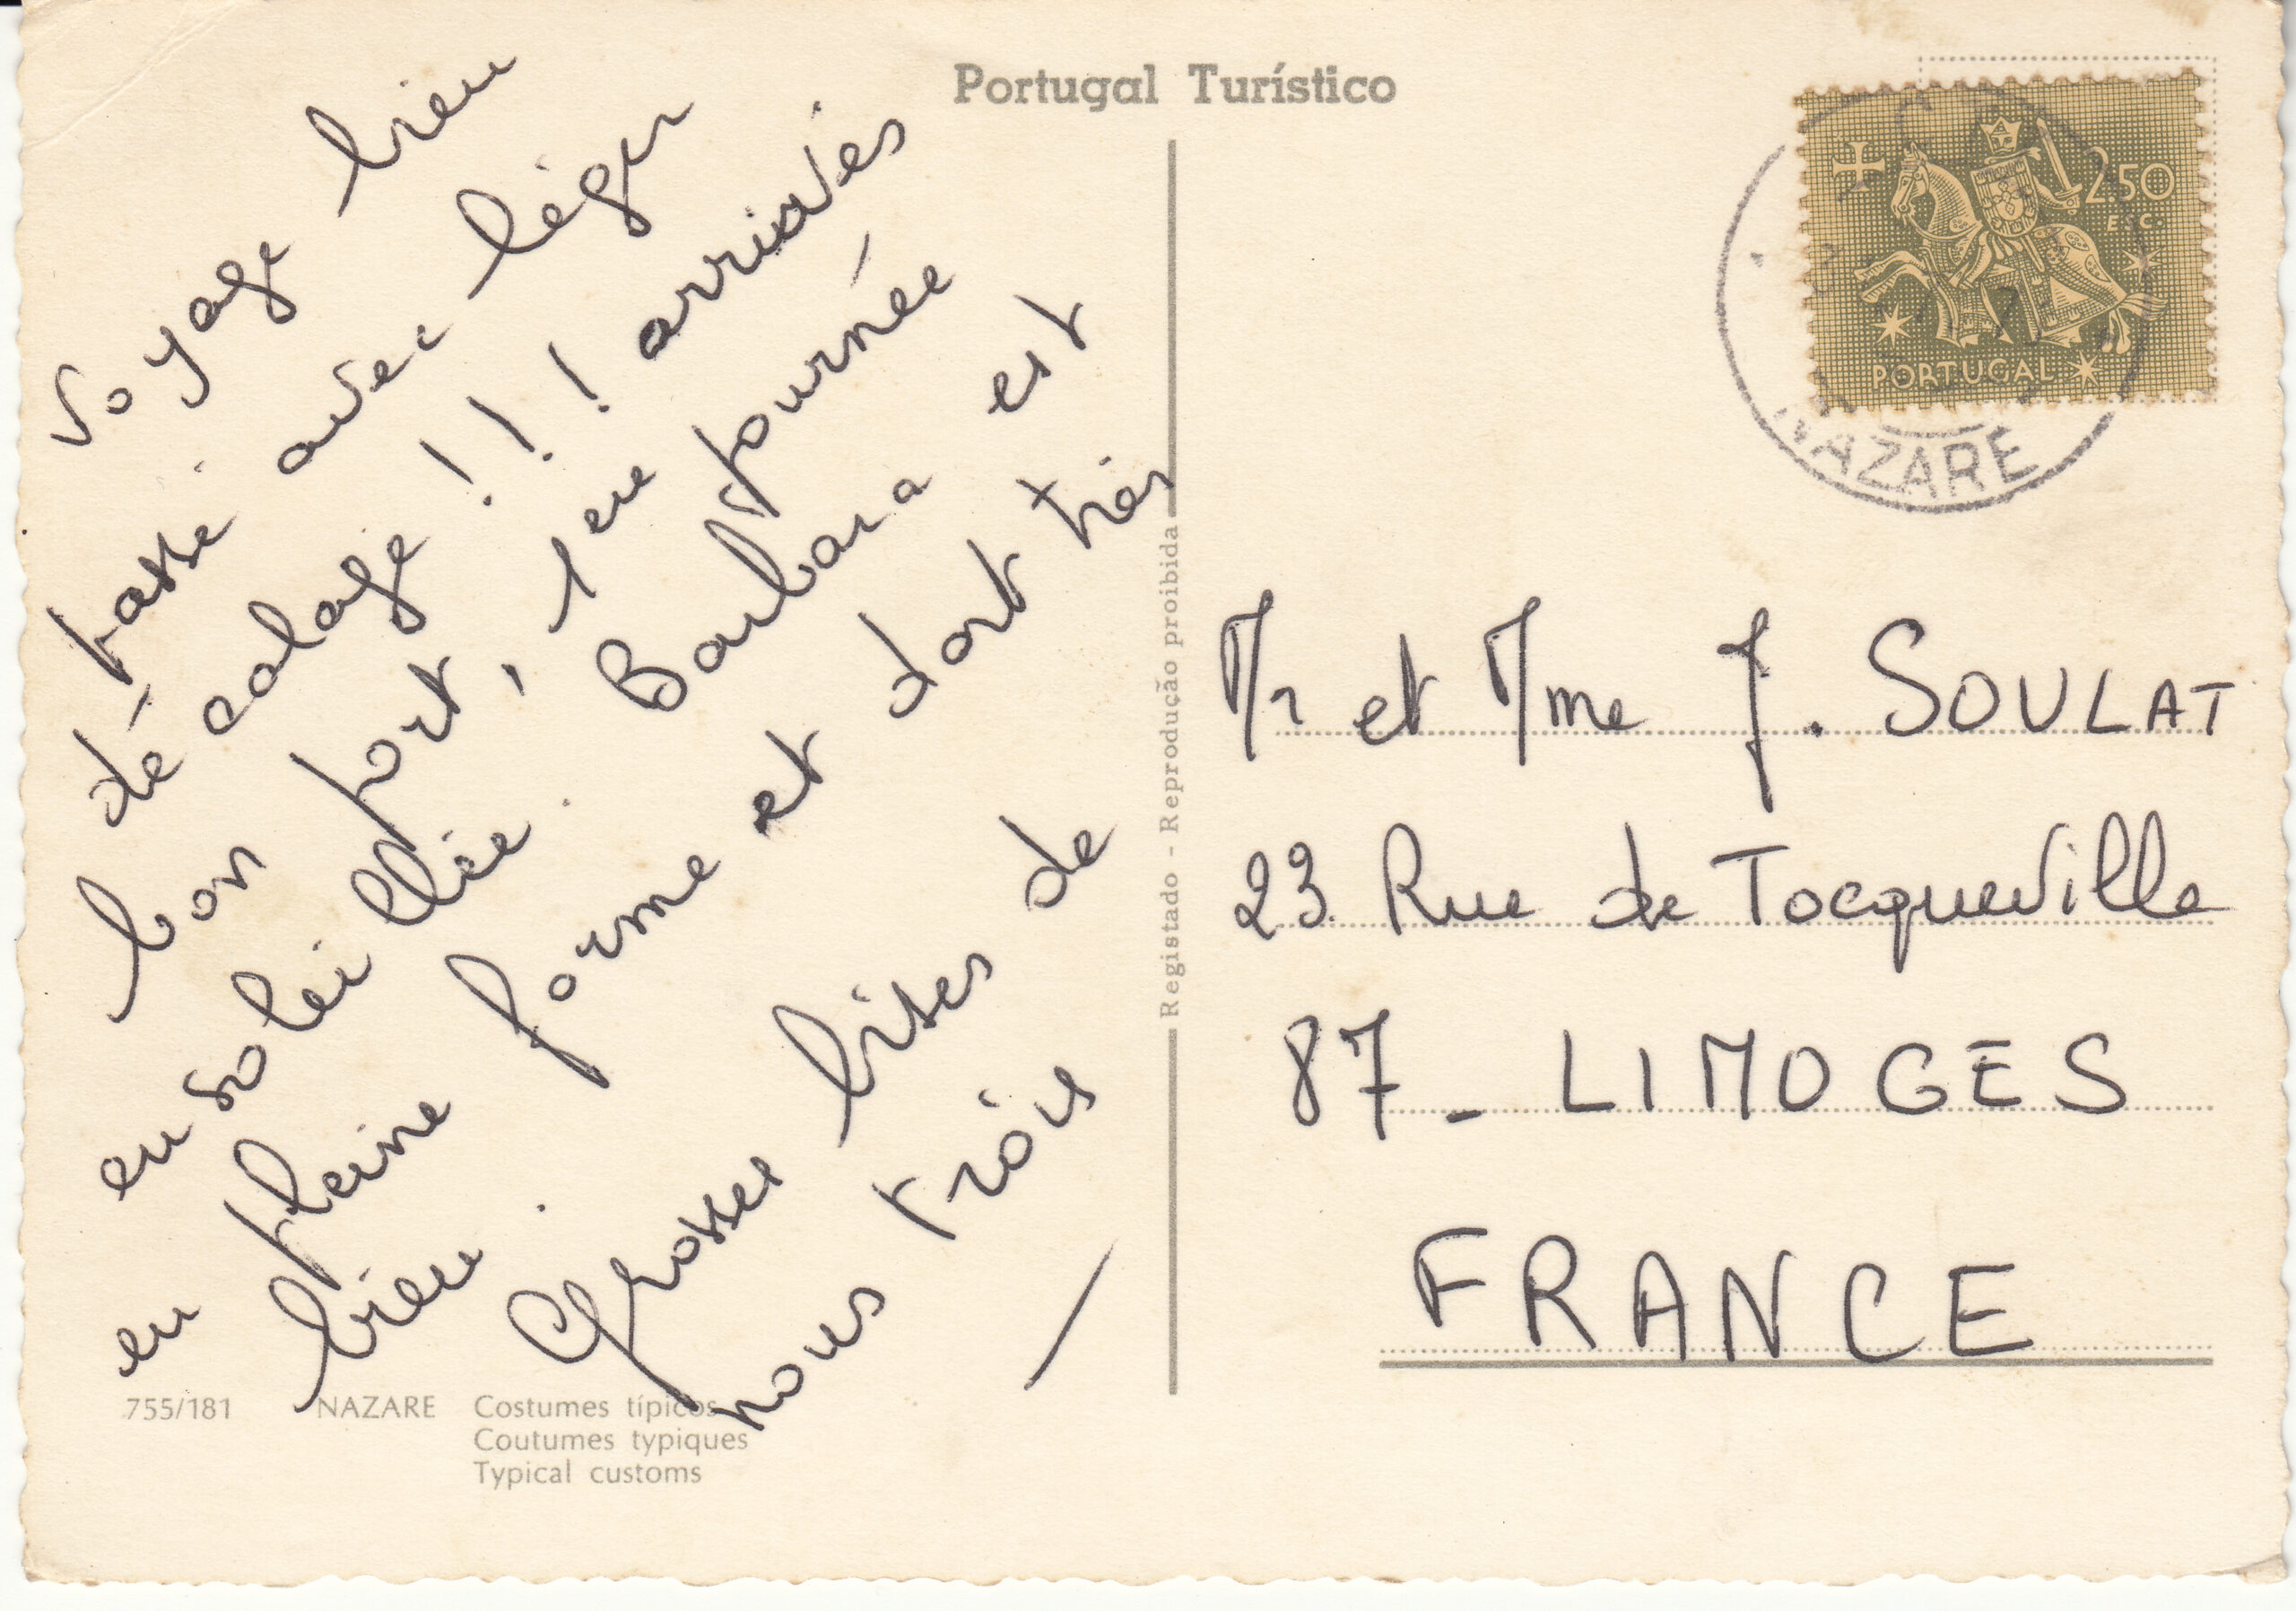 Portugal Turístico
Voyage bien
passé avec léger
décalage ! ! ! arrivées
bon port, 1ere journée
ensoleillée. Barbara est
en pleine forme et dort très
bien.
Grosses bises de
nous trois
755/181 NAZARE Costumes típicos
Coutumes typiques
Typical customs
Registado - Reprodução proibida
2$50
ESC.
PORTUGAL
NAZARE
Mr et Mme J. SOULAT
23 Rue de Tocqueville
87 - LIMOGES
FRANCE